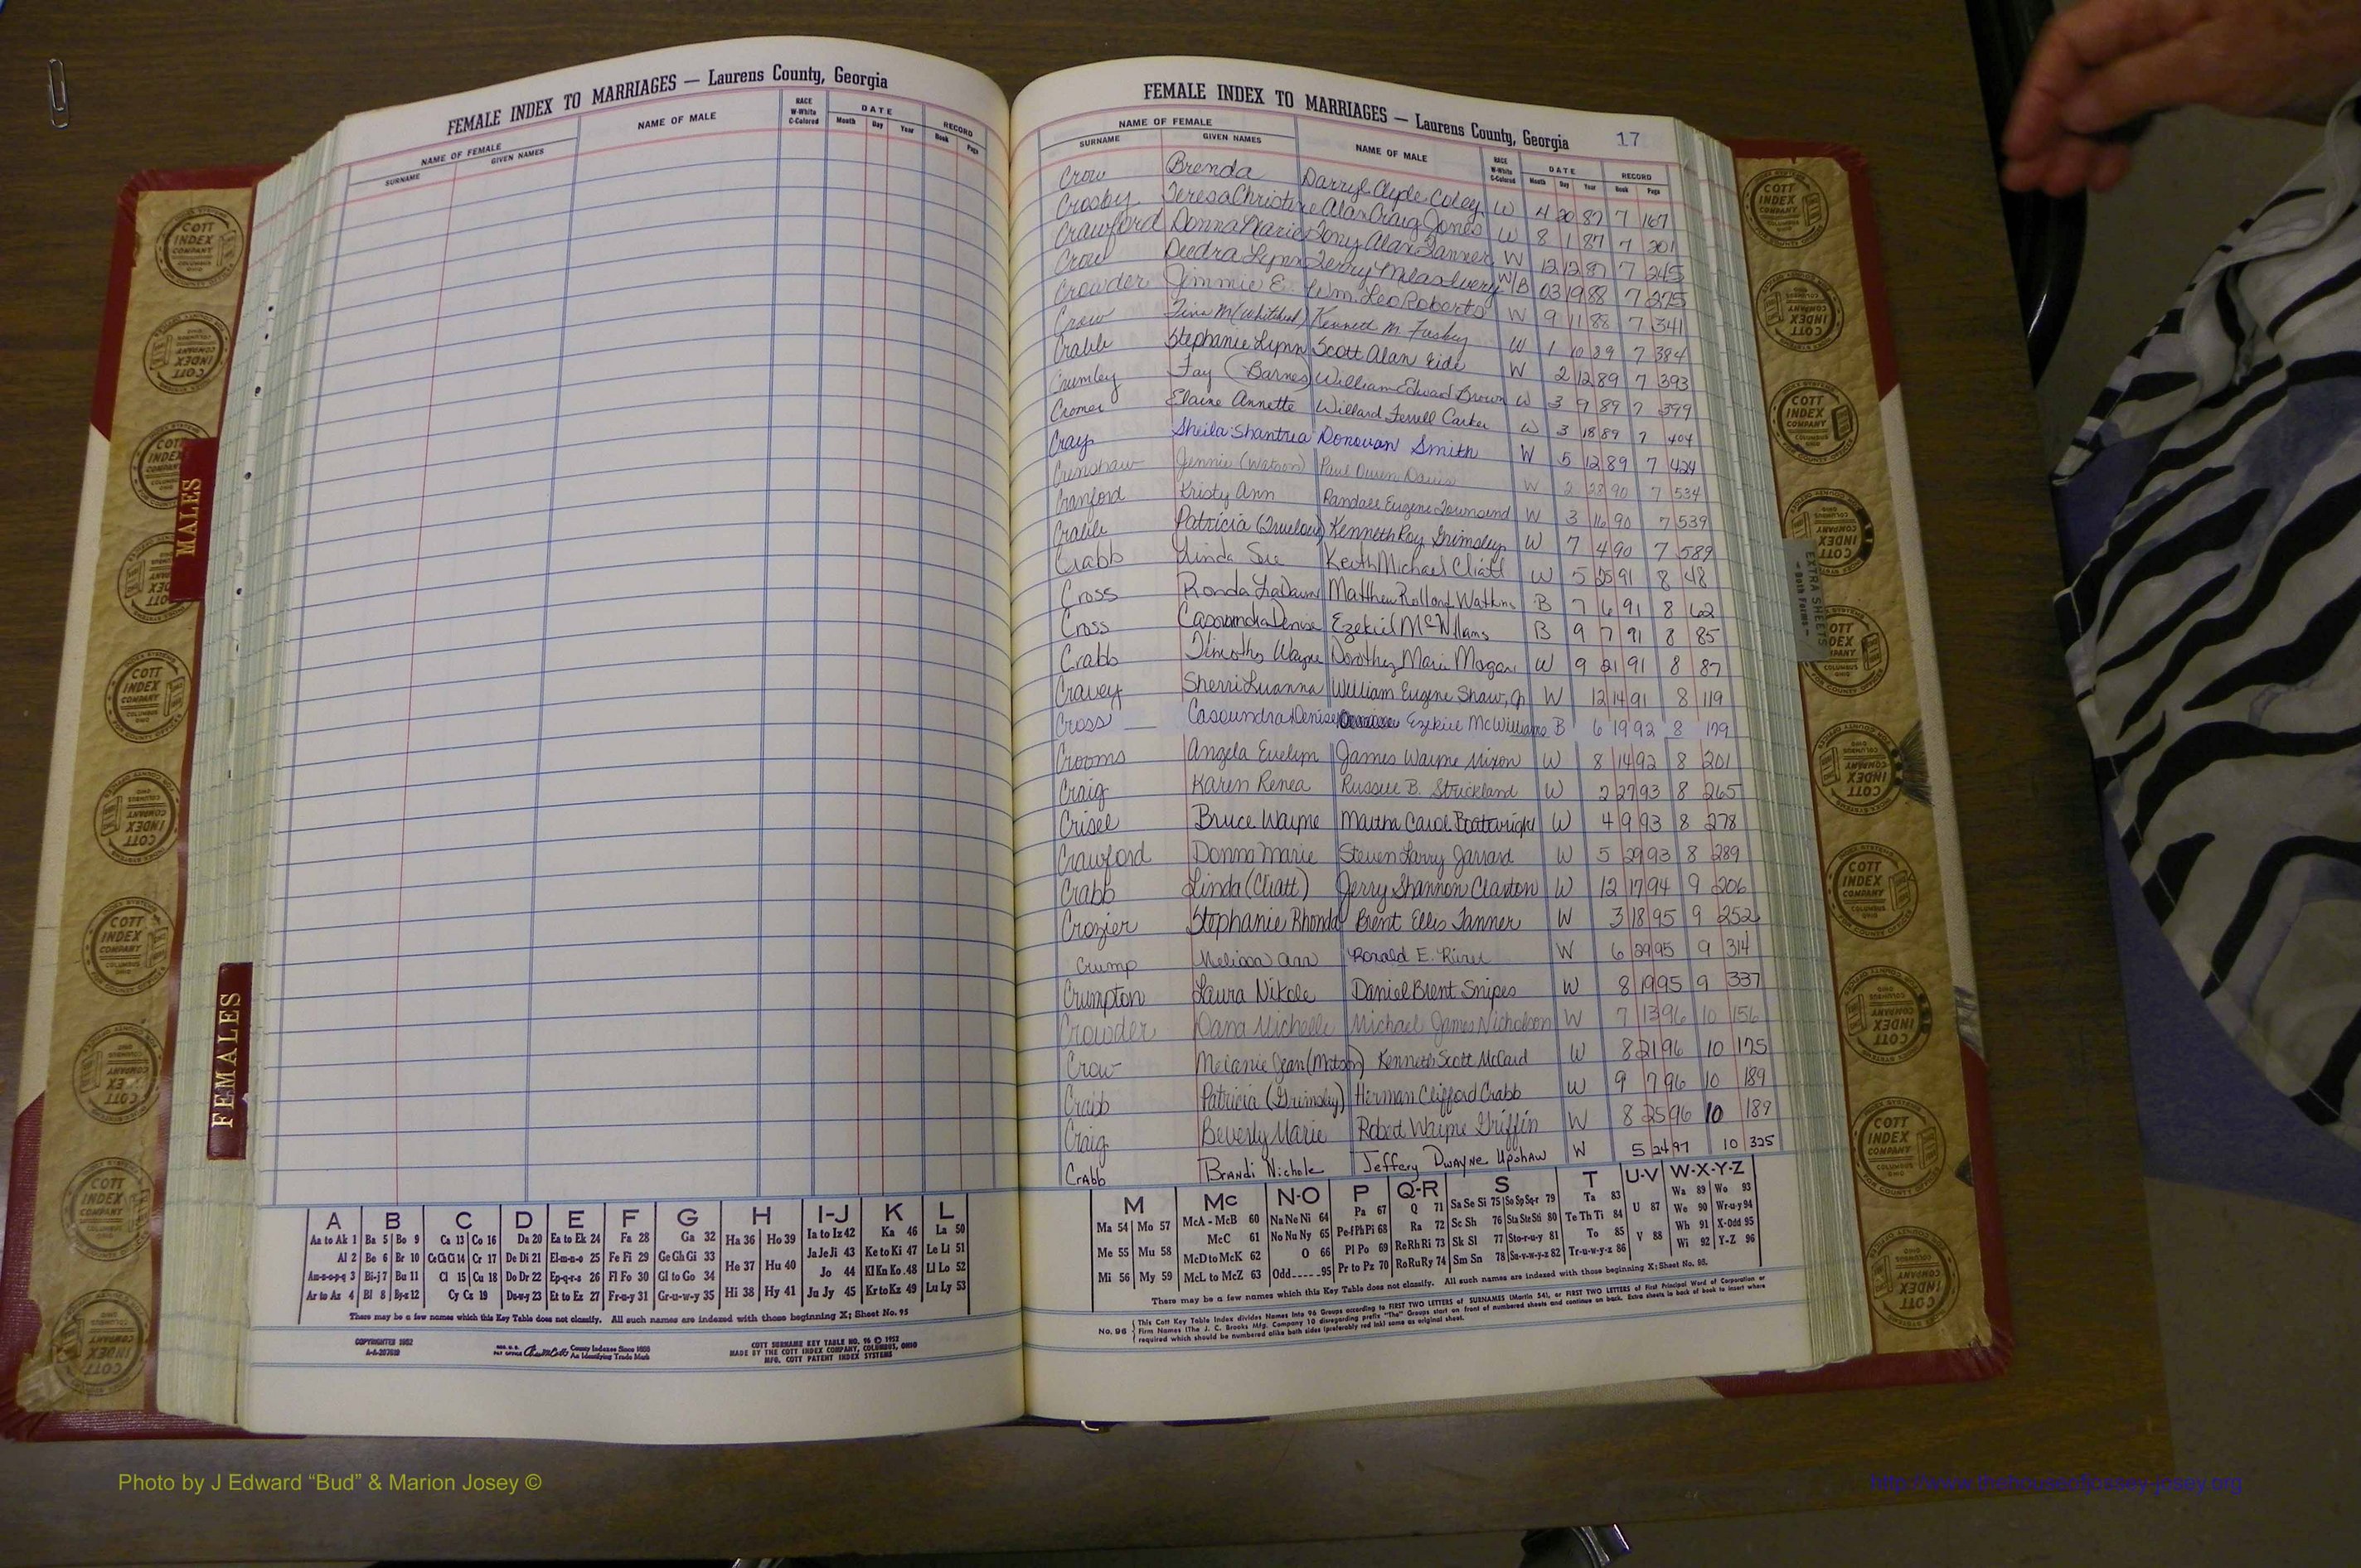 FEMALE INDEX TO MARRIAGES — Laurens County, Georgia
NAME OF FEMALE
SURNAME GIVEN NAMES NAME OF MALE RACE W-White C-Colored DATE Month Day Year RECORD Book Page
MALES
FEMALES
A B C D E F G H I-J K L
Aa to Ak 1 Ba 5 Bo 9 Ca 13 Co 16 Da 20 Ea to Ek 24 Fa 28 Ga 32 Ha 36 Ho 39 Ia to Iz 42 Ka 46 La 50
Al 2 Be 6 Br 10 Ce Ch Ci 14 Cr 17 De Di 21 El-m-n-o 25 Fe Fi 29 Ge Gh Gi 33 He 37 Hu 40 Ja Je Ji 43 Ke to Ki 47 Le Li 51
Am-n-o-p-q 3 Bi-j 7 Bu 11 Cl 15 Cu 18 Do Dr 22 Ep-q-r-s 26 Fl Fo 30 Gl to Go 34 Jo 44 Kl Kn Ko 48 Ll Lo 52
Ar to Az 4 Bl 8 By-z 12 Cy Cz 19 Du-w-y 23 Et to Ez 27 Fr-u-y 31 Gr-u-w-y 35 Hi 38 Hy 41 Ju Jy 45 Kr to Kz 49 Lu Ly 53
There may be a few names which this Key Table does not classify. All such names are indexed with those beginning X; Sheet No. 95
COPYRIGHTED 1952
County Indexes Since 1888
An Identifying Trade Mark
COTT SURNAME KEY TABLE NO. 96 © 1952
MADE BY THE COTT INDEX COMPANY, COLUMBUS, OHIO
MFG. COTT PATENT INDEX SYSTEMS
FEMALE INDEX TO MARRIAGES — Laurens County, Georgia 17
NAME OF FEMALE
SURNAME GIVEN NAMES NAME OF MALE RACE W-White C-Colored DATE Month Day Year RECORD Book Page
Crow Brenda Darryl Clyde Coley W 4 20 87 7 167
Crosby Teresa Christine Alan Craig Jones W 8 1 87 7 201
Crawford Donna Marie Tony Alan Tanner W 12 12 87 7 245
Crow Deedra Lynn Terry W/B 03 19 88 7 275
Crowder Jimmie E. Wm. Leo Roberts W 9 11 88 7 341
Crow Tina M (Whitehead) Kenneth M W 1 10 89 7 384
Crabb Stephanie Lynn Scott Alan Eide W 2 12 89 7 393
Crumley Fay (Barnes) William Edward Brown W 3 9 89 7 399
Cromer Elaine Annette Willard Ferrell Carter W 3 18 89 7 404
Cray Sheila Shantrea Donovan Smith W 5 12 89 7 424
Crenshaw Jennie (Watson) Paul Owen Davis W 2 28 90 7 534
Cranford Kristy Ann Randall Eugene Townsend W 3 16 90 7 539
Crabb Patricia (Truelove) Kenneth Ray Grimsley W 7 4 90 7 589
Crabb Linda Sue Keith Michael Cliatt W 5 25 91 8 48
Cross Ronda LaDawn Matthew Rolland Watkins B 7 6 91 8 62
Cross Casaundra Denise Ezekiel McWilliams B 9 7 91 8 85
Crabb Timothy Wayne Dorothy Marie Morgan W 9 21 91 8 87
Cravey Sherri Luanna William Eugene Shaw, Jr W 12 14 91 8 119
Cross Casaundra Denise Ezekiel McWilliams B 6 19 92 8 179
Crooms Angela Evelyn James Wayne Nixon W 8 14 92 8 201
Craig Karen Renea Russell B. Strickland W 2 27 93 8 265
Crisel Bruce Wayne Martha Carol Boatwright W 4 9 93 8 278
Crawford Donna Marie Steven Larry Jarrard W 5 29 93 8 289
Crabb Linda (Cliatt) Jerry Shannon Claxton W 12 17 94 9 206
Crozier Stephanie Rhonda Brent Ellis Tanner W 3 18 95 9 252
Crump Melissa Ann Ronald E. W 6 29 95 9 314
Crumpton Laura Nikole Daniel Brent Snipes W 8 19 95 9 337
Crowder Dana Michelle Michael James Nicholson W 7 13 96 10 156
Crow Melanie Jean (Matson) Kenneth Scott McCard W 8 21 96 10 175
Crabb Patricia (Grimsley) Herman Clifford Crabb W 9 7 96 10 189
Craig Beverly Marie Robert Wayne Griffin W 8 25 96 10 187
Crabb Brandi Nichole Jeffery Dwayne Upshaw W 5 24 97 10 325
M Mc N-O P Q-R S T U-V W-X-Y-Z
Ma 54 Mo 57 McA - McB 60 Na Ne Ni 64 Pa 67 Q 71 Sa Se Si 75 So Sp Sq-r 79 Ta 83 U 87 Wa 89 Wo 93
Me 55 Mu 58 McC 61 No Nu Ny 65 Pe-f Ph Pi 68 Ra 72 Sc Sh 76 Sta Ste Sti 80 Te Th Ti 84 V 88 We 90 Wr-u-y 94
Mi 56 My 59 McD to McK 62 O 66 Pl Po 69 Re Rh Ri 73 Sk Sl 77 Sto-r-u-y 81 To 85 Wh 91 X-Odd 95
McL to McZ 63 Odd-----95 Pr to Pz 70 Ro Ru Ry 74 Sm Sn 78 Su-v-w-y-z 82 Tr-u-w-y-z 86 Wi 92 Y-Z 96
There may be a few names which this Key Table does not classify. All such names are indexed with those beginning X; Sheet No. 95.
No. 96 This Cott Key Table Index divides Names into 96 Groups according to FIRST TWO LETTERS of SURNAMES (Martin 54), or FIRST TWO LETTERS of First Principal Word of Corporation or
Firm Names (The J. C. Brooks Mfg. Company 10 disregarding prefix "The" Groups start on front of numbered sheets and continue on back. Extra sheets in back of book to insert where
required which should be numbered alike both sides (preferably red ink) same as original sheet.
EXTRA SHEETS
— Both Forms —
COTT INDEX COMPANY COLUMBUS OHIO
Photo by J Edward “Bud” & Marion Josey ©
http://www.thehouseofjossey-josey.org